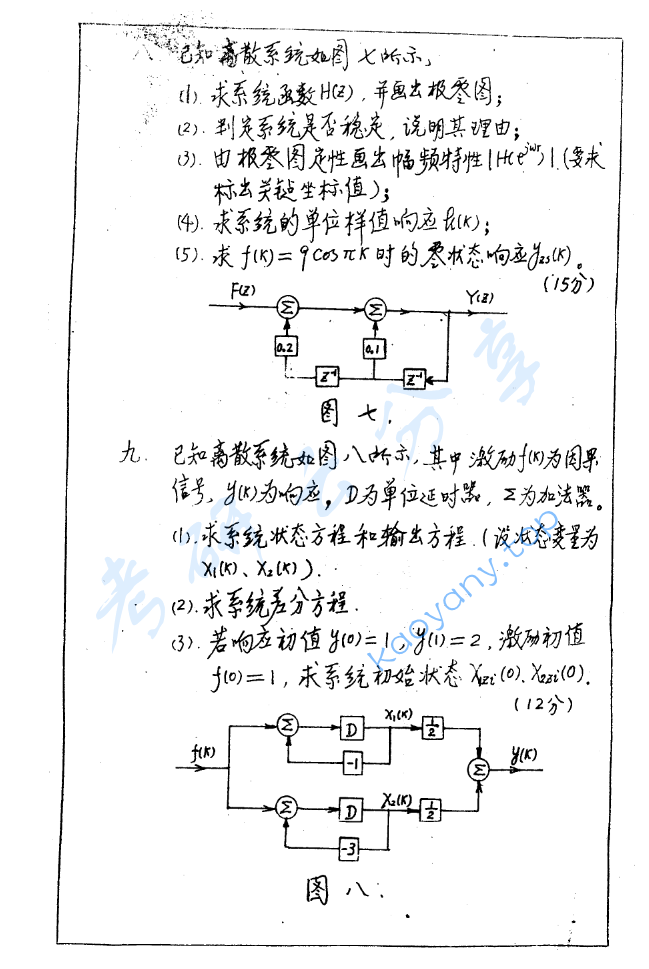 八 已知离散系统如图七所示,
(1). 求系统函数H(Z), 并画出极零图;
(2). 判定系统是否稳定, 说明其理由;
(3). 由极零图定性画出幅频特性|H(e^jwT)|.(要求
标出关键坐标值);
(4). 求系统的单位样值响应h(k);
(5). 求 f(k)=9cosπk时的零状态响应yzs(k)。
(15分)
F(Z) Σ Σ Y(Z)
0.2 0.1
Z⁻¹ Z⁻¹
图 七.
九. 已知离散系统如图八所示, 其中激励f(k)为因果
信号, y(k)为响应, D为单位延时器, Σ为加法器。
(1). 求系统状态方程和输出方程.(设状态变量为
X₁(k)、X₂(k)).
(2). 求系统差分方程.
(3). 若响应初值y(0)=1, y(1)=2, 激励初值
f(0)=1, 求系统初始状态X₁zi(0)、X₂zi(0).
(12分)
Σ D X₁(k) 1/2
f(k) -1 Σ y(k)
Σ D X₂(k) 1/2
-3
图 八.
考研云分享
kaoyany.top